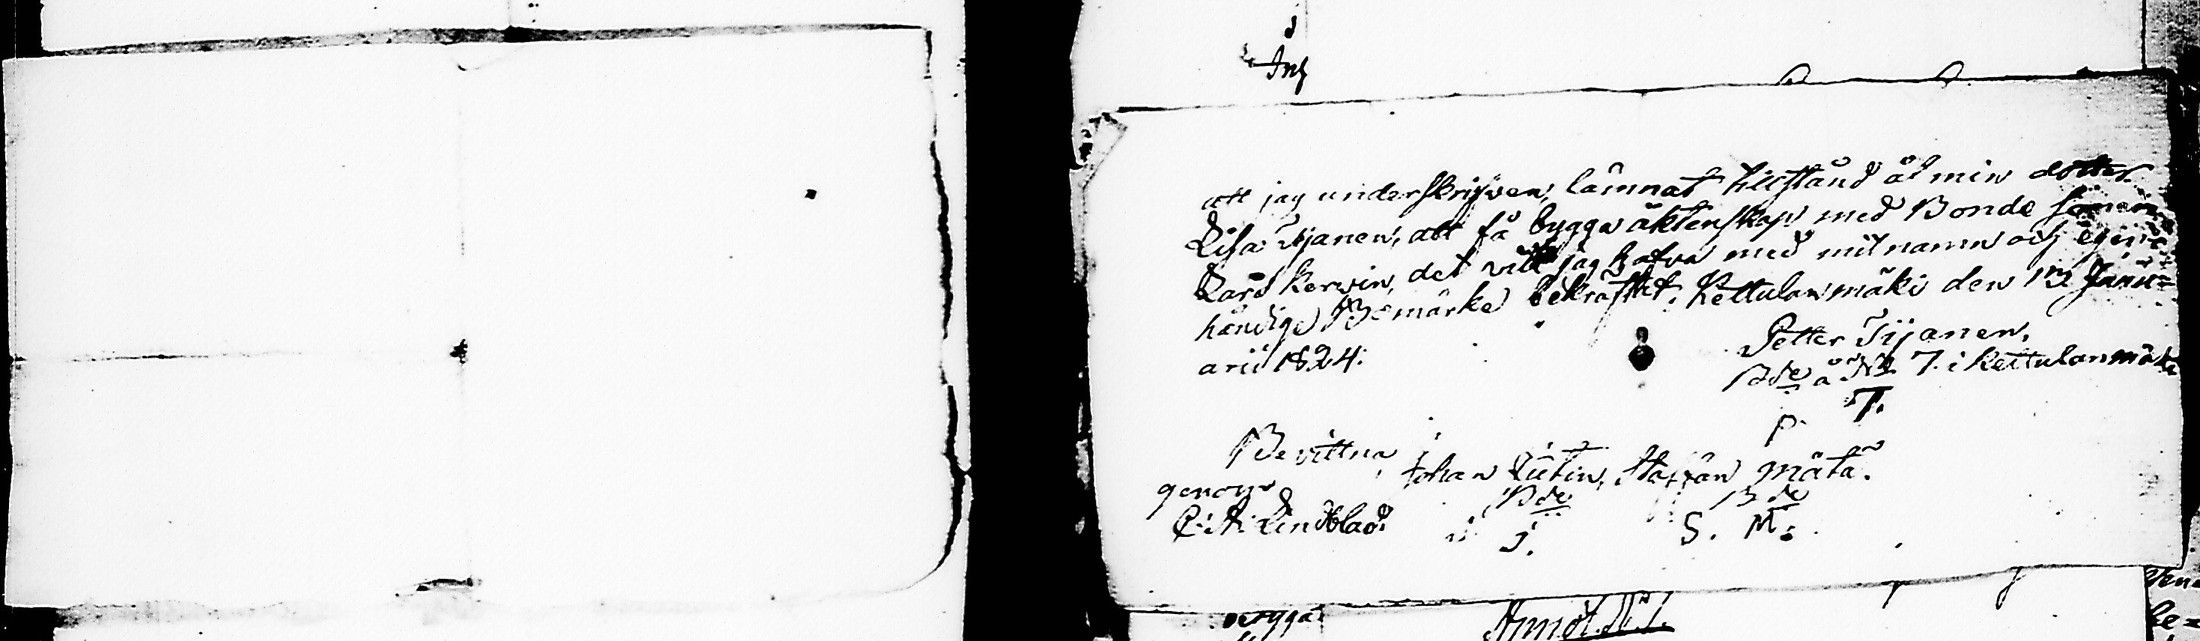 att jag underskrifwen, lämnat tillstånd åt min dotter
Lisa Tijanen, att få bygga äktenskap med Bonde sonen
Lars Kerwin, det vill jag hafva med mit namn och egen=
händige Bomärke bekräftat. Kettulanmäki den 13 Janu=
arii 1824.
Petter Tijanen,
Bde å No 7 i Kettulanmäki
P. T.
Bevittna
Johan Lutin, Staffan Mätä.
genom
Bde Bde
C. A. Lindblad.
J. S. M.